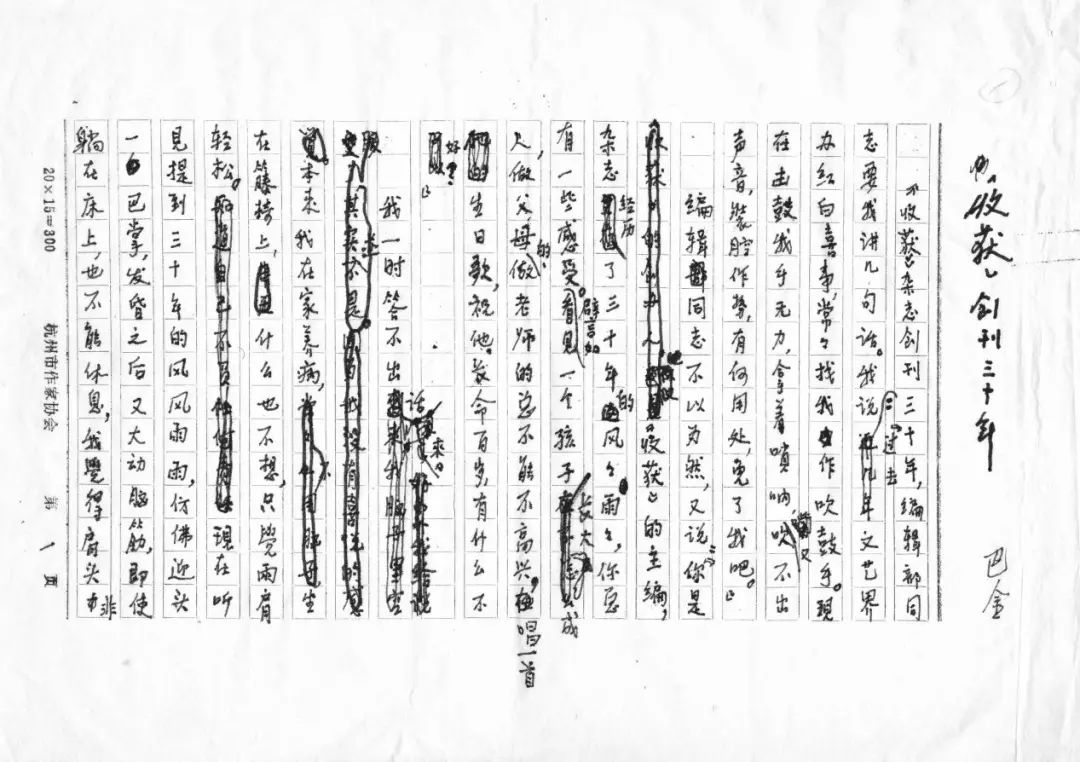 《收获》创刊三十年
巴金
《收获》杂志创刊三十年，编辑部同
志要我讲几句话。我说：过去文艺界
办红白喜事，常常找我作吹鼓手。现
在击鼓我手无力，拿着唢呐，又吹不出
声音，装腔作势，有何用处，免了我吧。」
编辑同志不以为然，又说：「你是
《收获》的主编，
杂志经历了三十年的风风雨雨，你总
有一些感受。譬如看见一个孩子长大成
人，做父母的、做老师的总不能不高兴，唱一首
生日歌，祝他长命百岁，有什么不
好？」
我一时答不出话来。
本来我在家养病，坐
在藤椅上，什么也不想，只觉两肩
轻松。现在听
见提到三十年的风风雨雨，仿佛迎头
一巴掌，发昏之后又大动脑筋，即使
躺在床上，也不能休息，我觉得肩头非
20×15=300
杭州市作家协会
第 1 页